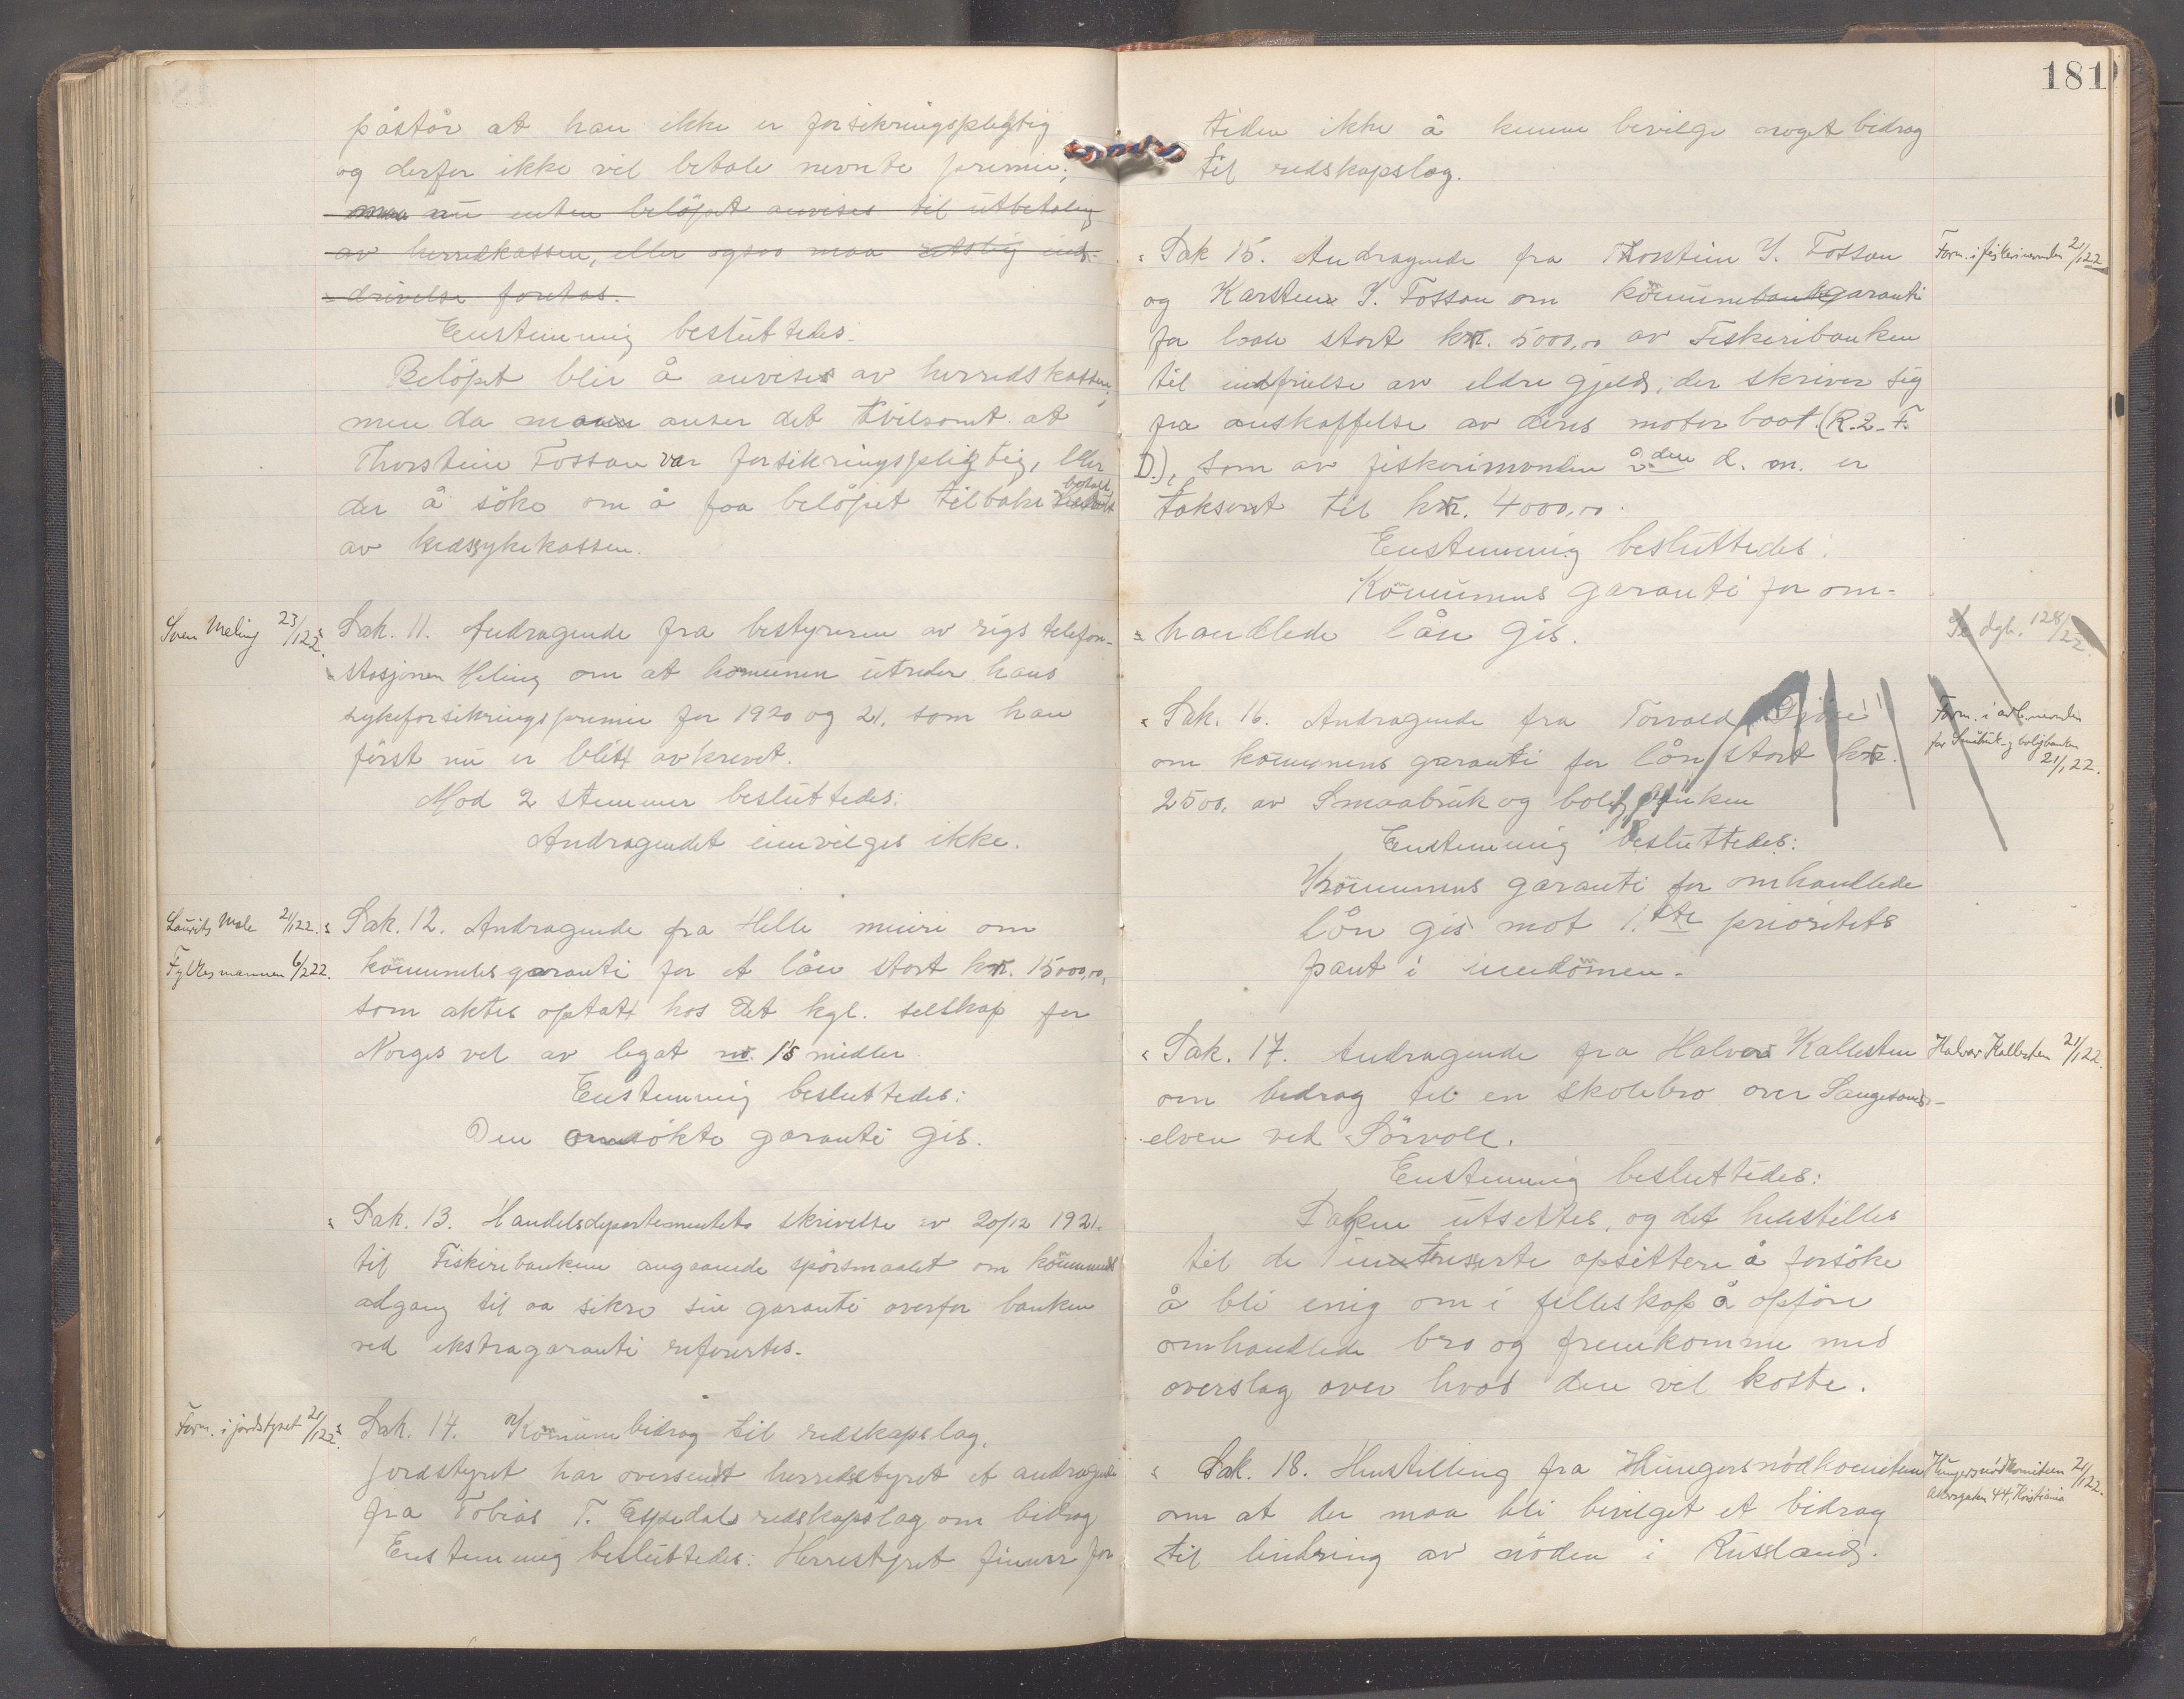 påstår at han ikke er forsikringspligtig
og derfor ikke vil betale nevnte premie;
maa nu enten belöpet anvises til utbetaling
av herredkassen, eller ogsaa maa retslig ind-
drivelse foretas.
Enstemmig besluttedes:
Belöpet blir å anvises av herredskassen,
men da man anser det tvilsomt at
Thorstein Fossan var forsikringspligtig, blir
der å söke om å faa belöpet tilbake betalt
av kredssykekassen.
Sven Meling 23/1 22.
Sak. 11. Andragende fra bestyreren av rigstelefon-
stasjonen Meling om at komunen utreder hans
sykeforsikringspremie for 1920 og 21, som han
först nu er blitt avkrevet.
Mod 2 stemmer besluttedes:
Andragendet innvilges ikke.
Laurits Mele 21/1 22.
Fylkesmannen 6/2 22.
Sak. 12. Andragende fra Helle meieri om
komunesgaranti for et lån stort kr. 15000,00,
som aktes optatt hos Det kgl. selskap for
Norges vel av legat no. 15 midler.
Enstemmig besluttedes:
Den ansökte garanti gis.
Sak. 13. Handelsdepartementets skrivelse av 20/12 1921.
til Fiskeribanken angaaende spörsmaalet om komunens
adgang til aa sikre sin garanti overfor banken
ved ekstragaranti refertes.
Form. i jordstyret 21/1 22.
Sak. 14. Komunebidrag til redskapslag.
Jordstyret har oversendt herredstyret et andragende
fra Tobias T. Espedals redskapslag om bidrag
Enstemmig besluttedes: Herrestyret finner for
181
tiden ikke å kunne bevilge noget bidrag
til redskapslag.
Sak 15. Andragende fra Thorstein I. Fossan
Form. i fiskerinevnden 21/1 22
og Karsten I. Fossan om komunegaranti
for laan stort kr. 5000,00 av Fiskeribanken
til indfrielse av eldre gjeld, der skriver sig
fra anskaffelse av deres motorbaat (R.2-F.
D.), som av fiskerinevnden 2den d. m. er
taksert til kr. 4000,00.
Enstemmig besluttedes:
Komunens garanti for om-
handlede lån gis.
Se dgb. 128/22.
Sak. 16. Andragende fra Torvald
Form. i arb.nevnden
for Småbruk- og boligbanken
21/1 22.
om komunens garanti for lån stort kr.
2500, av Smaabruk og boligbanken
Enstemmig besluttedes:
Komunens garanti for omhandlede
lån gis mot 1.ste prioritets
pant i eiendommen.
Sak. 17. Andragende fra Halvor Kallesten
Halvor Kallesten 21/1 22.
om bidrag til en skolebro over Haugesands-
elven ved Sörvoll.
Enstemmig besluttedes:
Saken utsettes, og det henstilles
til de interesserte opsittere å forsöke
å bli enig om i felleskap å opföre
omhandlede bro og fremkomme med
overslag over hvad den vil koste.
Sak. 18. Henstilling fra Hungersnödkomiteen
Hungersnödkomiteen 21/1 22.
Akersgaten 44, Kristiania
om at der maa bli bevilget et bidrag
til lindring av nöden i Russland.